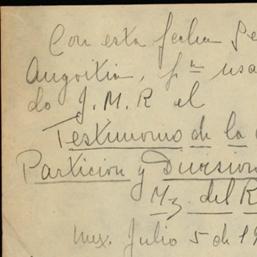 Con esta fecha Se
Angoitia, pª usa
do J. M. R el
Testimonio de la
Particion y Division
Mz. del R
Mex. Julio 5 de 19